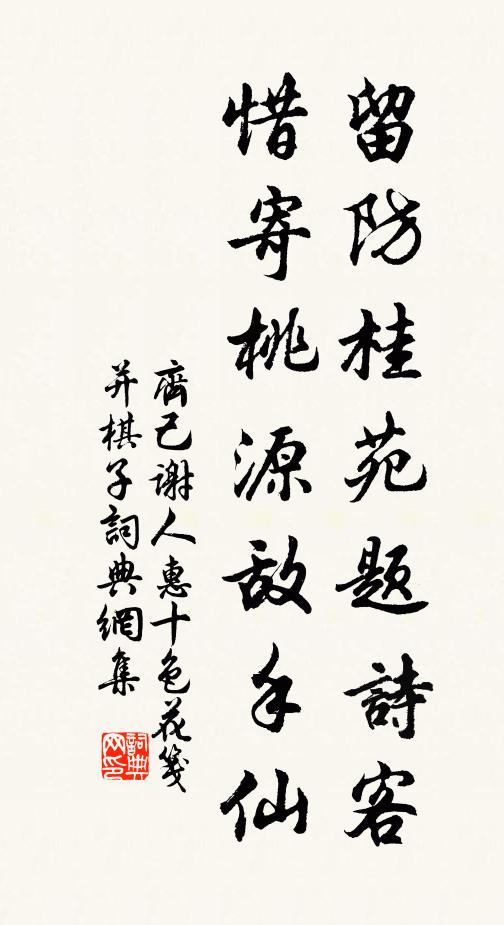 留防桂苑题詩客
惜寄桃源敌手仙
齊己谢人惠十色花笺
并棋子詞典網集
詞典
网印